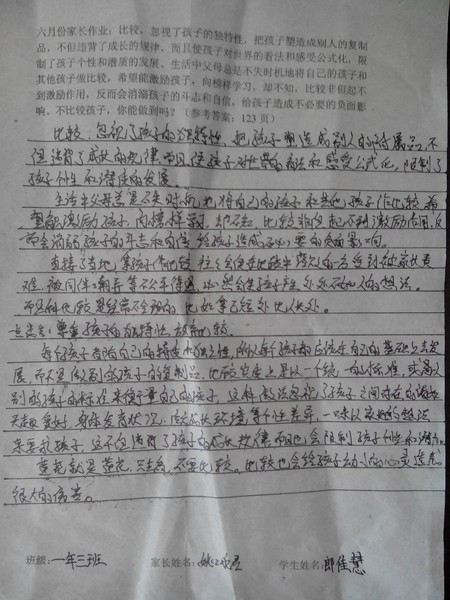 六月份家长作业：比较，忽视了孩子的独特性，把孩子塑造成别人的复制
品，不但违背了成长的规律，而且使孩子对世界的看法和感受公式化，限
制了孩子个性和潜质的发展。生活中父母总是不失时机地将自己的孩子和
其他孩子做比较，希望能激励孩子，向榜样学习，却不知，比较非但起不
到激励作用，反而会消弱孩子的斗志和自信，给孩子造成不必要的负面影
响。不比较孩子，你能做到吗？（参考答案：123 页）
比较，忽视了孩子的独特性，把孩子塑造成别人的附属品，不
但违背了成长的规律，而且使孩子对世界的看法和感受公式化，限制了
孩子个性和潜质的发展。
生活中父母总是不失时机地将自己的孩子和其他孩子作比较，希
望能激励孩子，向榜样学习，却不知，比较非但起不到激励作用，反
而会消弱孩子的斗志和自信，给孩子造成不必要的负面影响。
直接了当地拿孩子作比较，往往会使在比较中
难，被同伴 等不公平待遇，必然会使孩子产生处处不如人的想法。
而这种比较是经常不合理的，比如拿短处比人长处。
尊重孩子的独特性，放弃比较。
每个孩子都有自己的特点和独立性，所以每个孩子都应该在自己的基础上去发
展，而不是做别家孩子的复制品。比较实际上是以一个统一的标准，或者以
别的孩子的标准来衡量自己的孩子，这种做法忽视了孩子之间存在的
天赋、爱好、身体发育状况、成长环境等个性差异，一味以家长的想法
来要求孩子，这不但违背了孩子的成长规律，而且会限制孩子个性和潜力。
黄花就是黄花， 不要比较。比较也会给孩子幼小的心灵造成
很大的伤害。
班级：一年三班 家长姓名： 学生姓名：郎佳慧